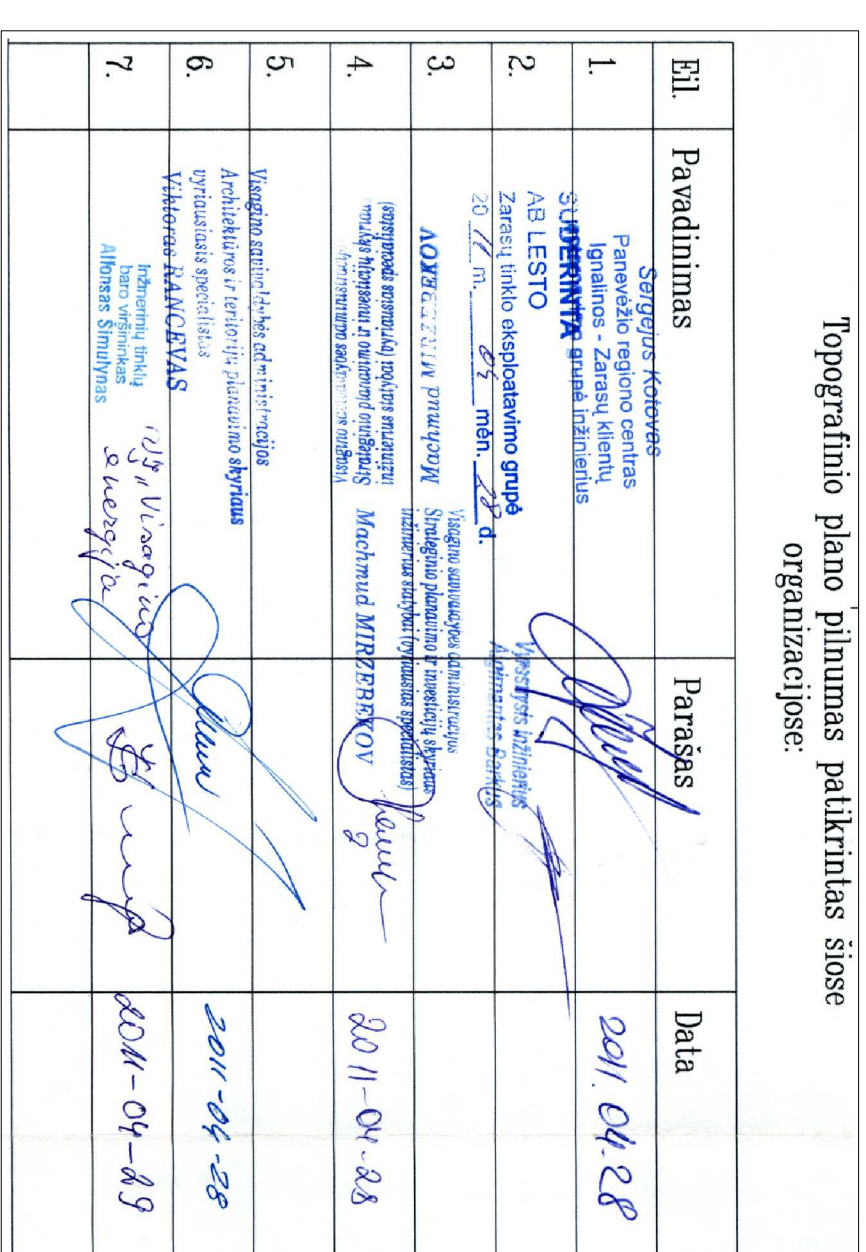 Topografinio plano pilnumas patikrintas šiose
organizacijose:
Eil. Pavadinimas Parašas Data
1. Sergejus Kotovas
Panevėžio regiono centras
Ignalinos - Zarasų klientų
grupė inžinierius
2011.04.28
2. SUDERINTA
AB LESTO
Zarasų tinklo eksploatavimo grupė
20 11 m. 04 mėn. 28 d.
Vyresnysis inžinierius
Algimantas Barkus
3. Machmud
4. Strateginio planavimo ir investicijų skyriaus
inžinierius statybai (vyriausias specialistas)
Visagino savivaldybės administracijos
Strateginio planavimo ir investicijų skyriaus
inžinierius statybai (vyriausias specialistas)
Machmud MIRZEBEKOV
2011-04-28
5.
6. Visagino savivaldybės administracijos
Architektūros ir teritorijų planavimo skyriaus
vyriausiasis specialistas
Viktoras RANCEVAS
2011-04-28
7. Inžinerinių tinklų
baro viršininkas
Alfonsas Šimulynas
VĮ „Visagino
energija
2011-04-29